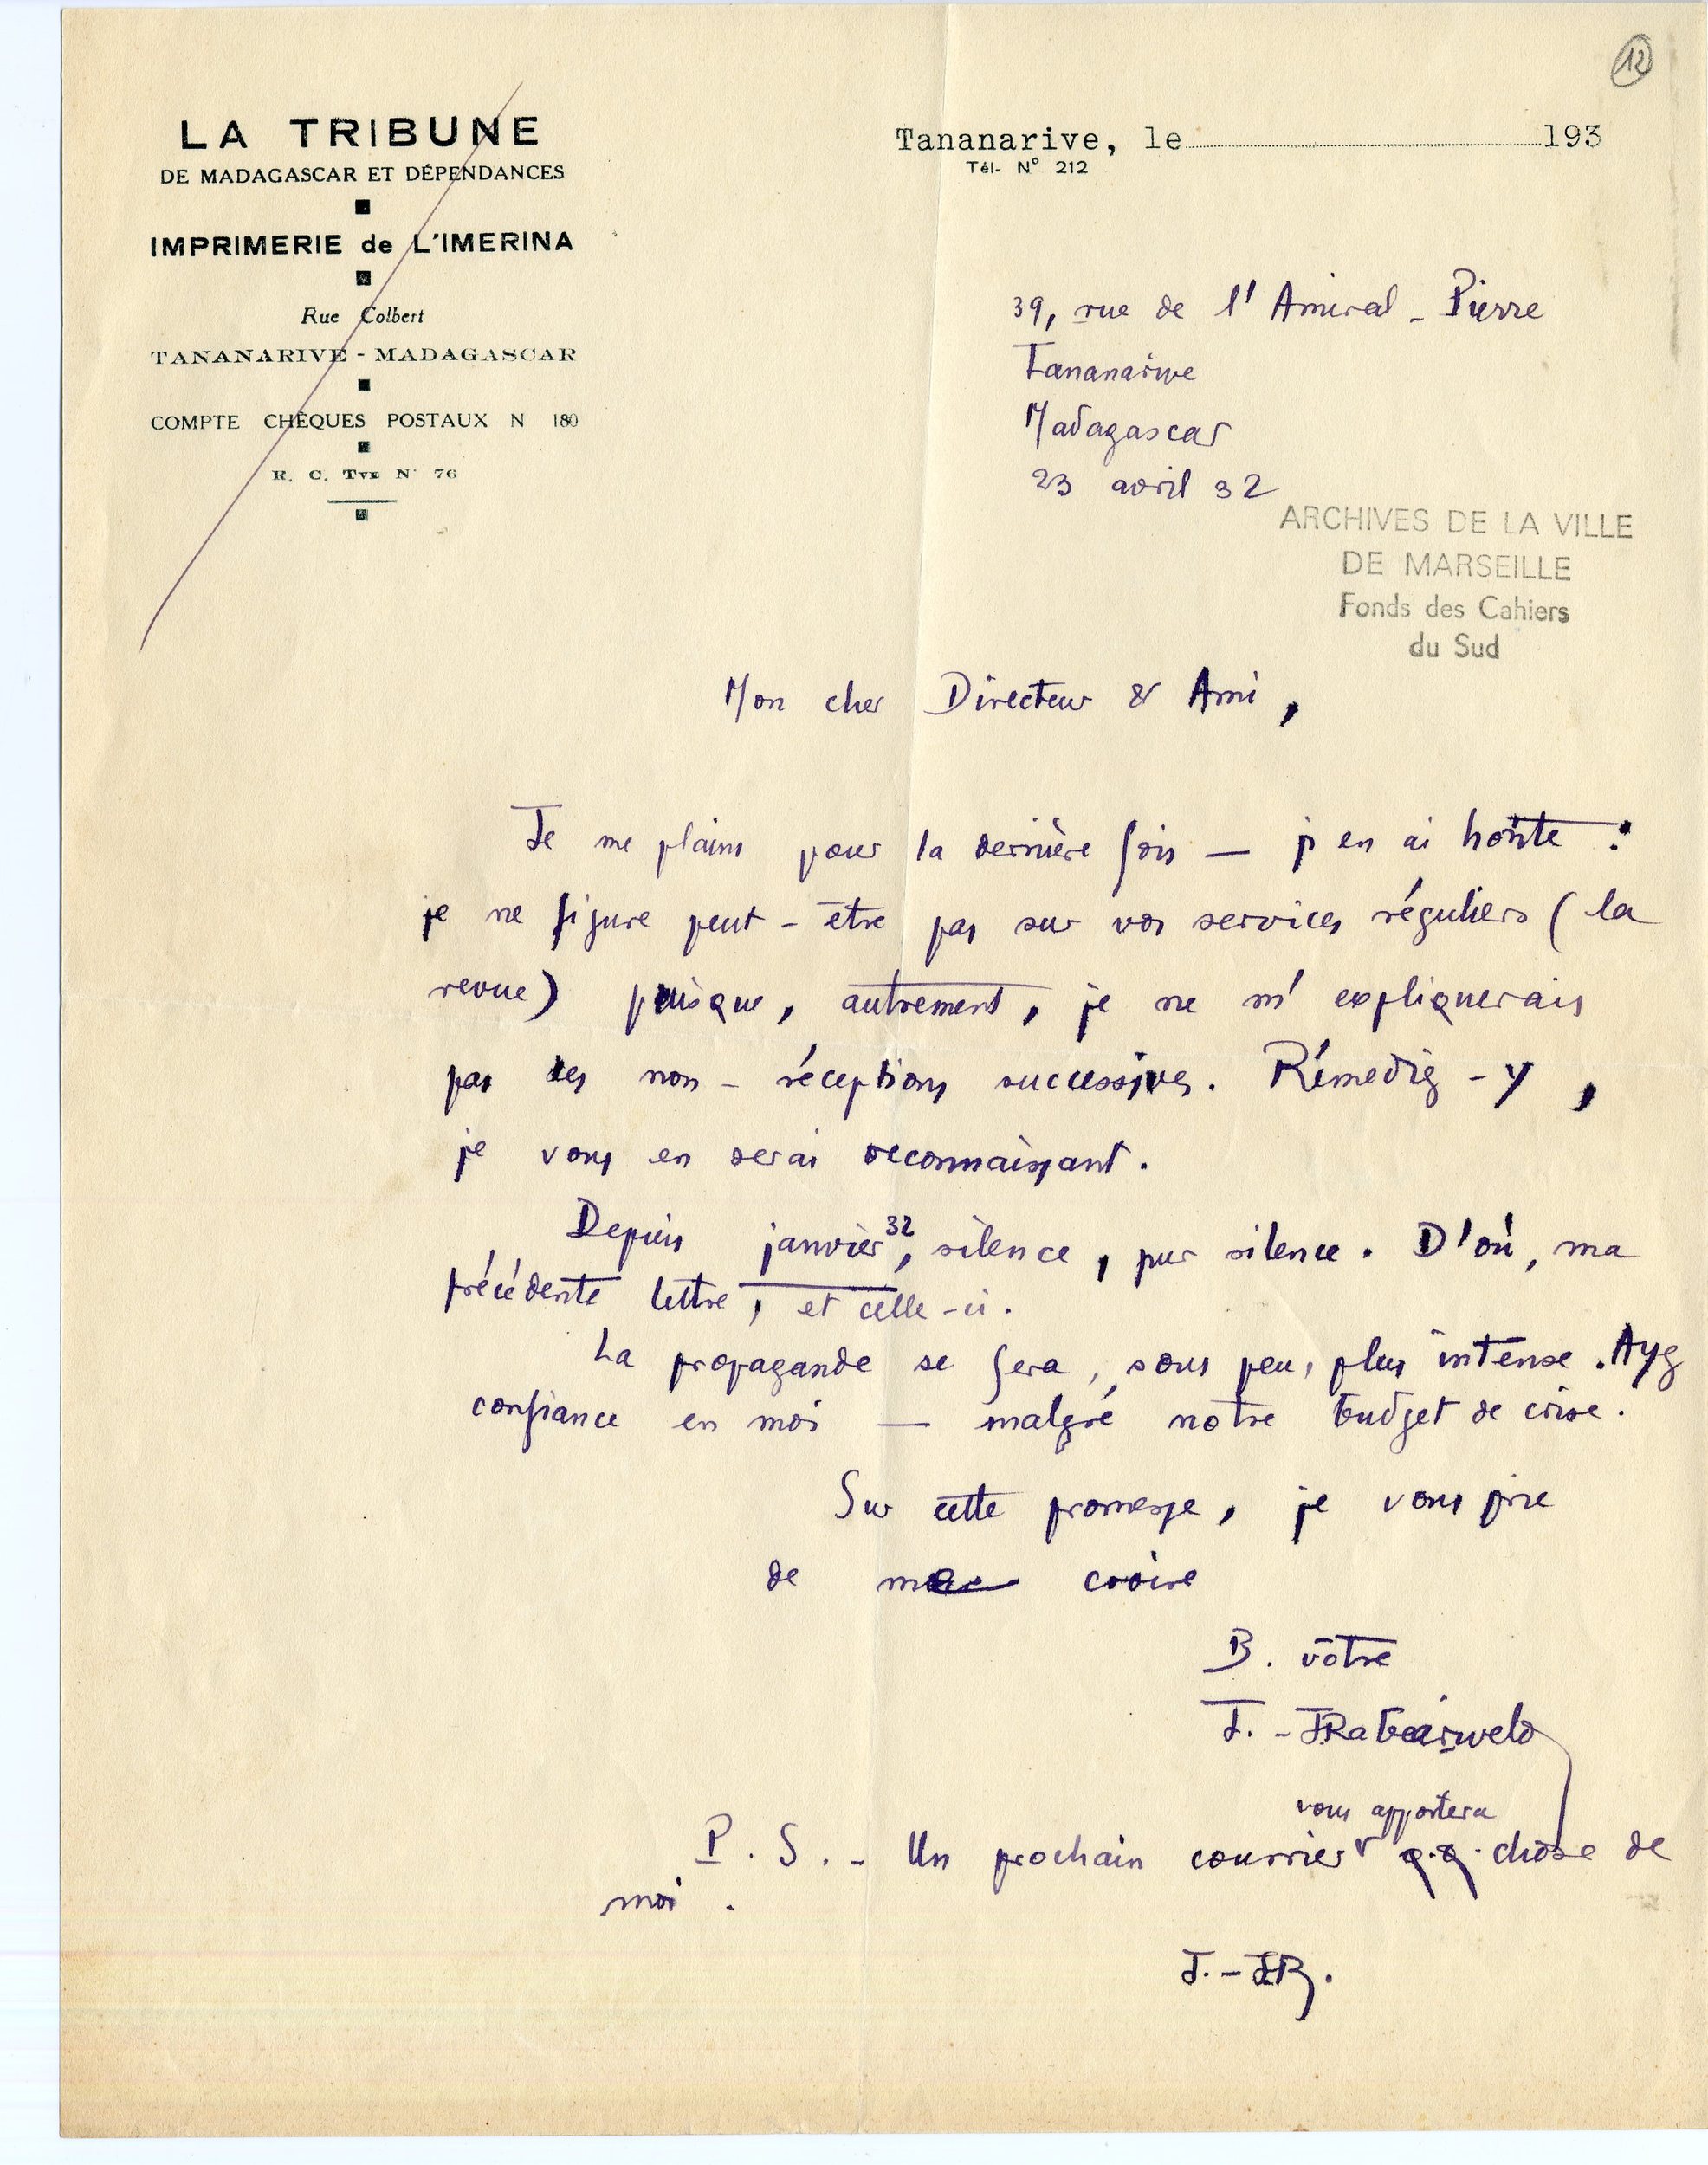 12
LA TRIBUNE
DE MADAGASCAR ET DÉPENDANCES
IMPRIMERIE de L'IMERINA
Rue Colbert
TANANARIVE - MADAGASCAR
COMPTE CHÈQUES POSTAUX N 180
R. C. Tve N° 76
Tananarive, le 193
Tél- N° 212
39, rue de l'Amiral-Pierre
Tananarive
Madagascar
23 avril 32
ARCHIVES DE LA VILLE
DE MARSEILLE
Fonds des Cahiers
du Sud
Mon cher Directeur & Ami,
Je me plains pour la dernière fois — j'en ai honte :
je ne figure peut-être pas sur vos services réguliers (la
revue) puisque, autrement, je ne m'expliquerais
pas les non-réceptions successives. Rémediez-y,
je vous en serai reconnaissant.
Depuis janvier 32, silence, pur silence. D'où, ma
précédente lettre, et celle-ci.
La propagande se fera, sous peu, plus intense. Ayez
confiance en moi — malgré notre budget de crise.
Sur cette promesse, je vous prie
de me croire
B. vôtre
J.-J Rabearivelo
vous apportera
P.S.- Un prochain courrier q.q. chose de
moi.
J.-JR.